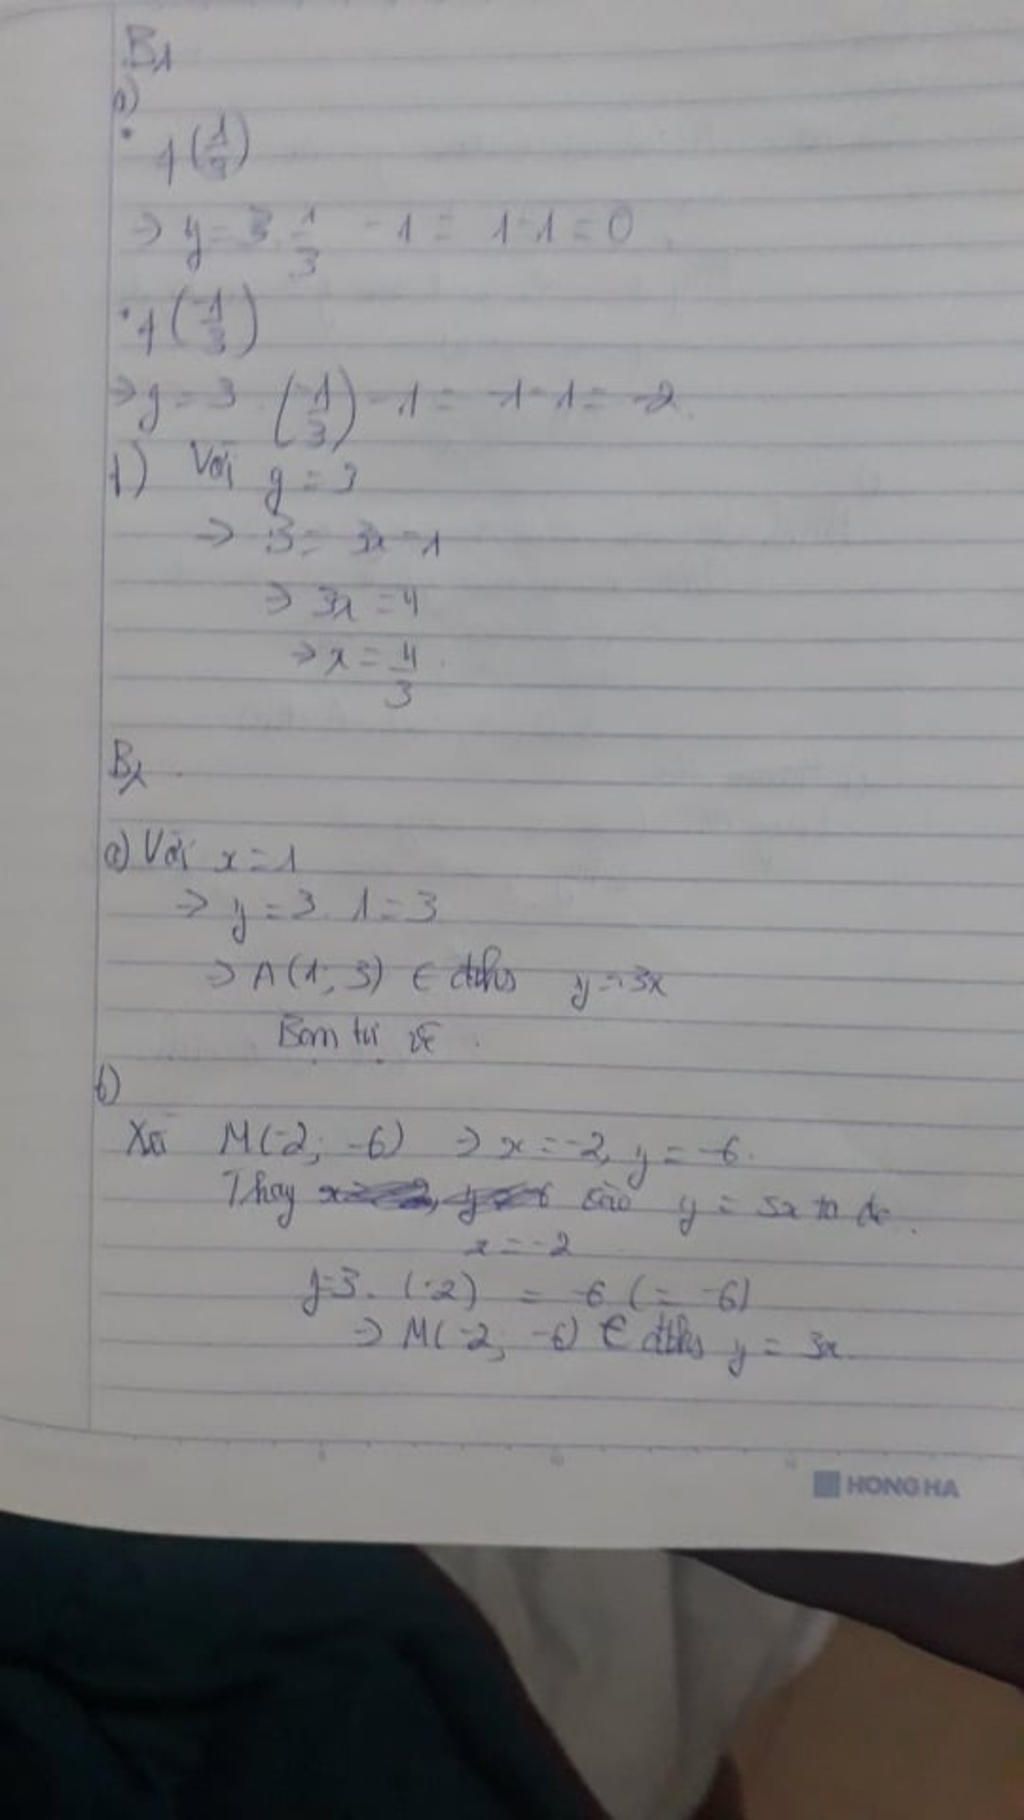 B1
a)
• f(1/3)
=> y = 3. 1/3 - 1 = 1-1 = 0
• f(-1/3)
=> y = 3. (-1/3) - 1 = -1-1 = -2
b) Với y = 3
=> 3 = 3x-1
=> 3x = 4
=> x = 4/3
B2
a) Với x = 1
=> y = 3. 1 = 3
=> A(1; 3) ∈ đths y = 3x
Bạn tự vẽ
b)
Xét M(-2; -6) => x = -2, y = -6
Thay vào y = 3x ta đc
x = -2
y=3. (-2) = -6 (= -6)
=> M(-2; -6) ∈ đths y = 3x
HONG HA